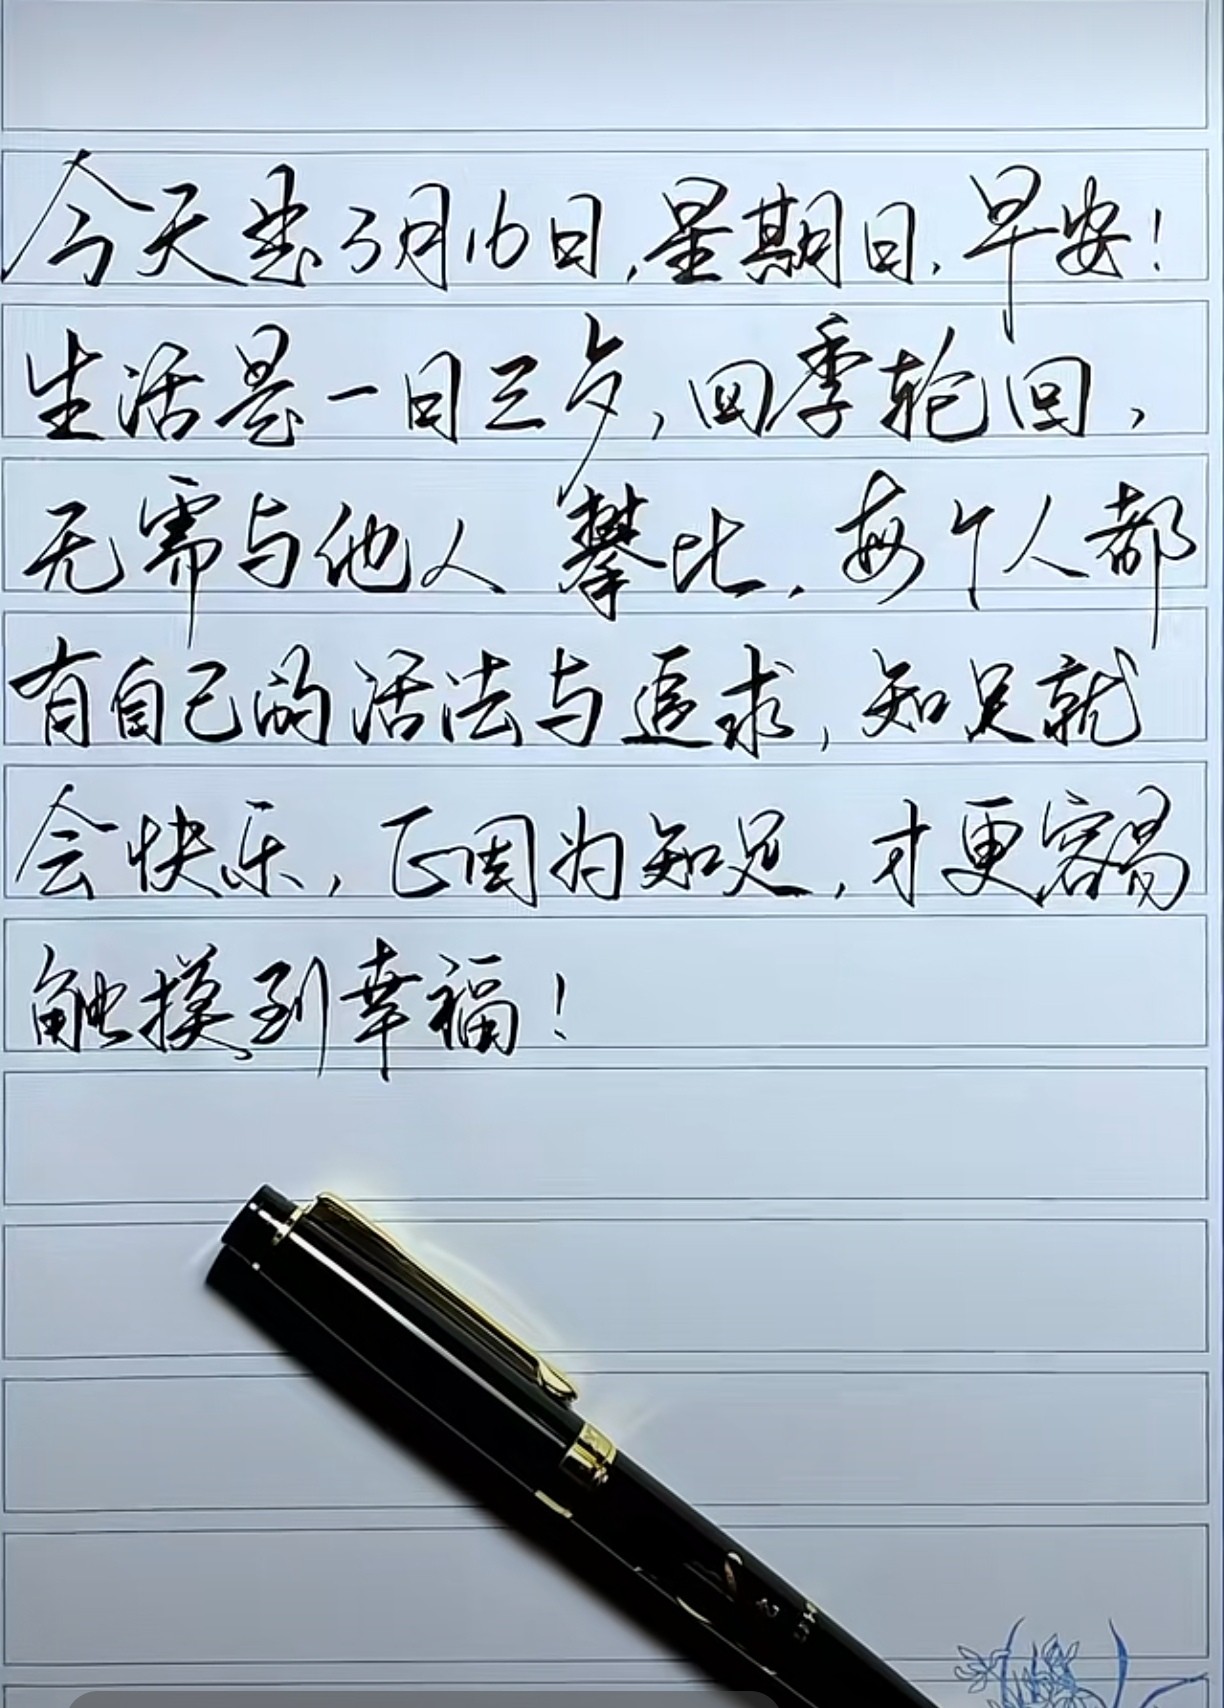 今天是3月16日,星期日.早安!
生活是一日三歺,四季轮回,
无需与他人攀比.每个人都
有自己的活法与追求,知足就
会快乐,正因为知足,才更容易
触摸到幸福!